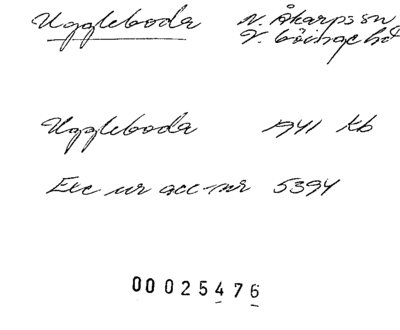 Uggleboda N. Åkarps sn
V. Göinge hd
Uggleboda 1941 Kb
Exc ur acc-nr 5394
00025476